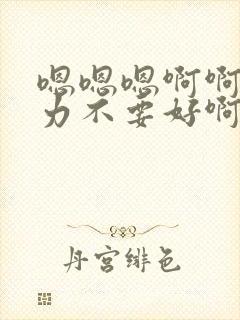 嗯嗯嗯啊啊
力不要好啊
丹宫绯色